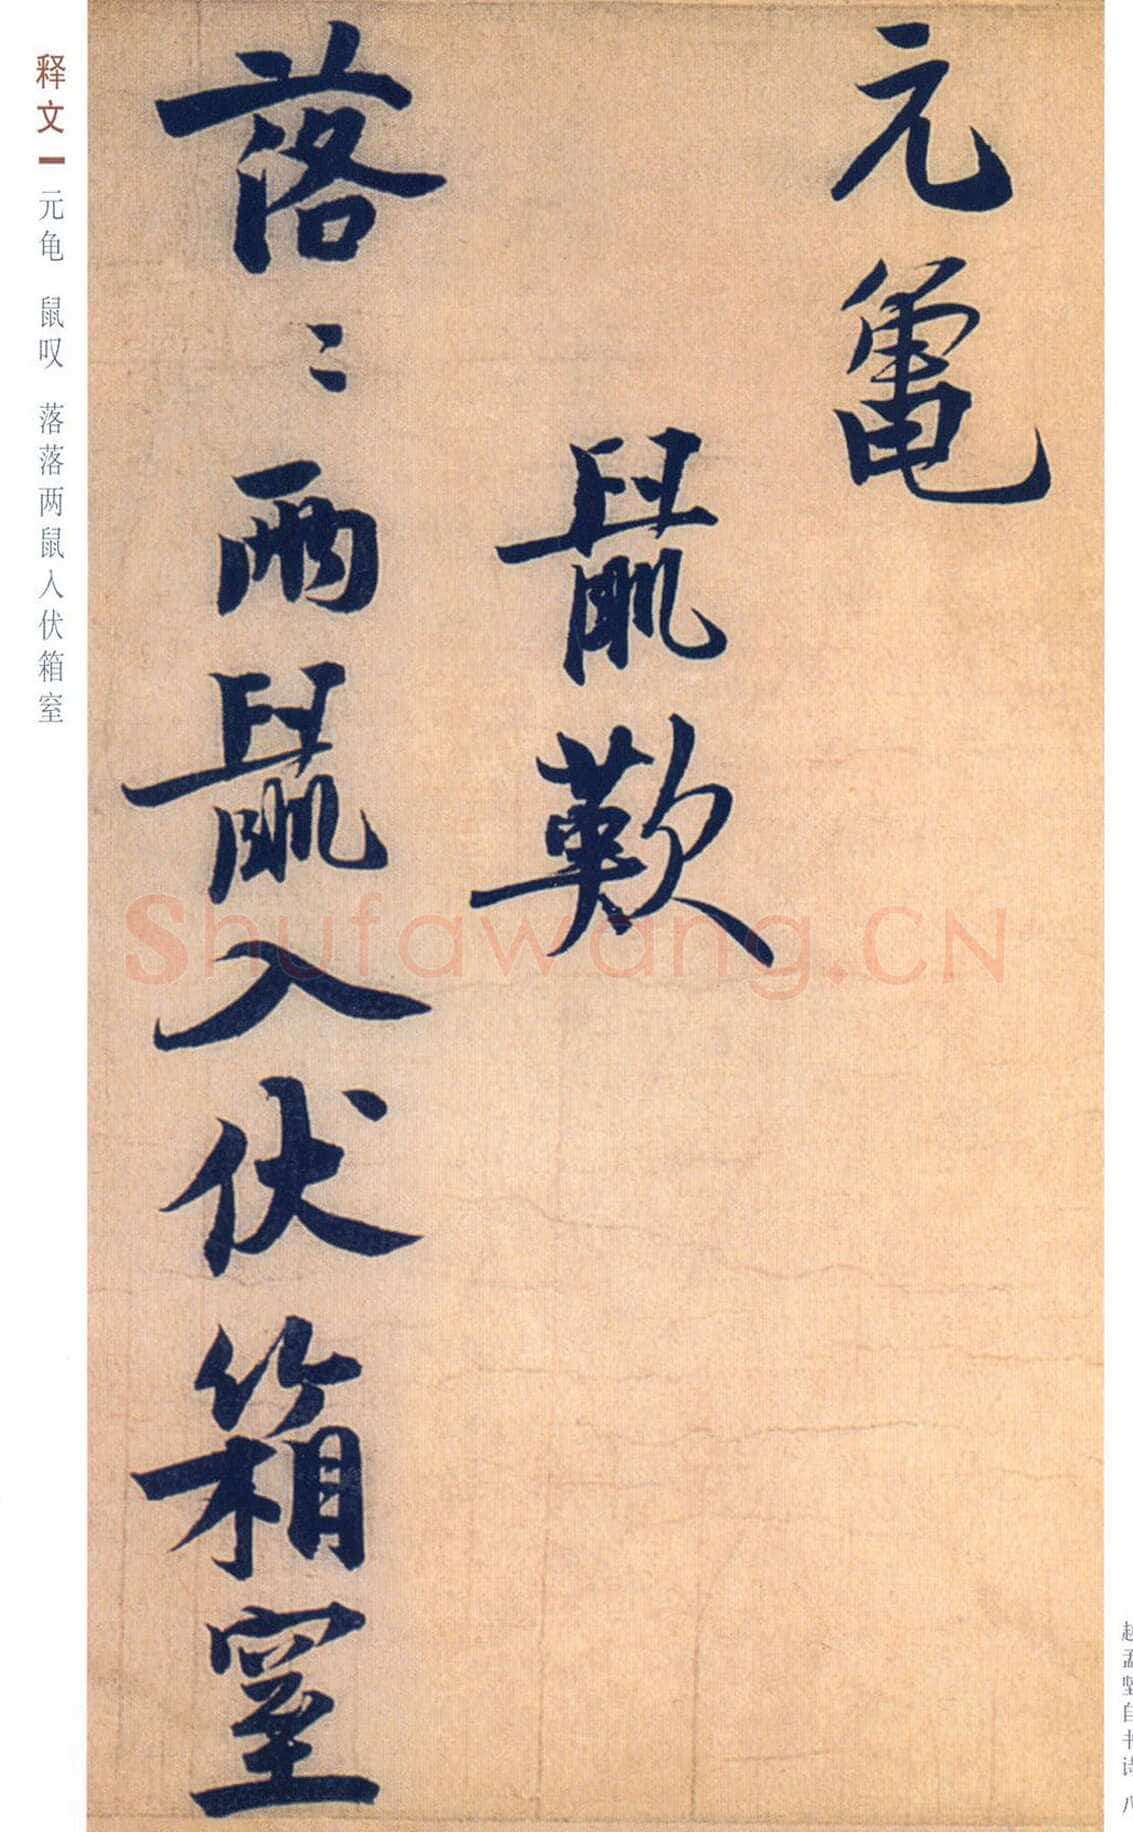 元龜
鼠歎
落〻兩鼠入伏箱窒
释文 元龟 鼠叹 落落两鼠入伏箱窒
Shufawang.CN
赵孟坚自书诗 八